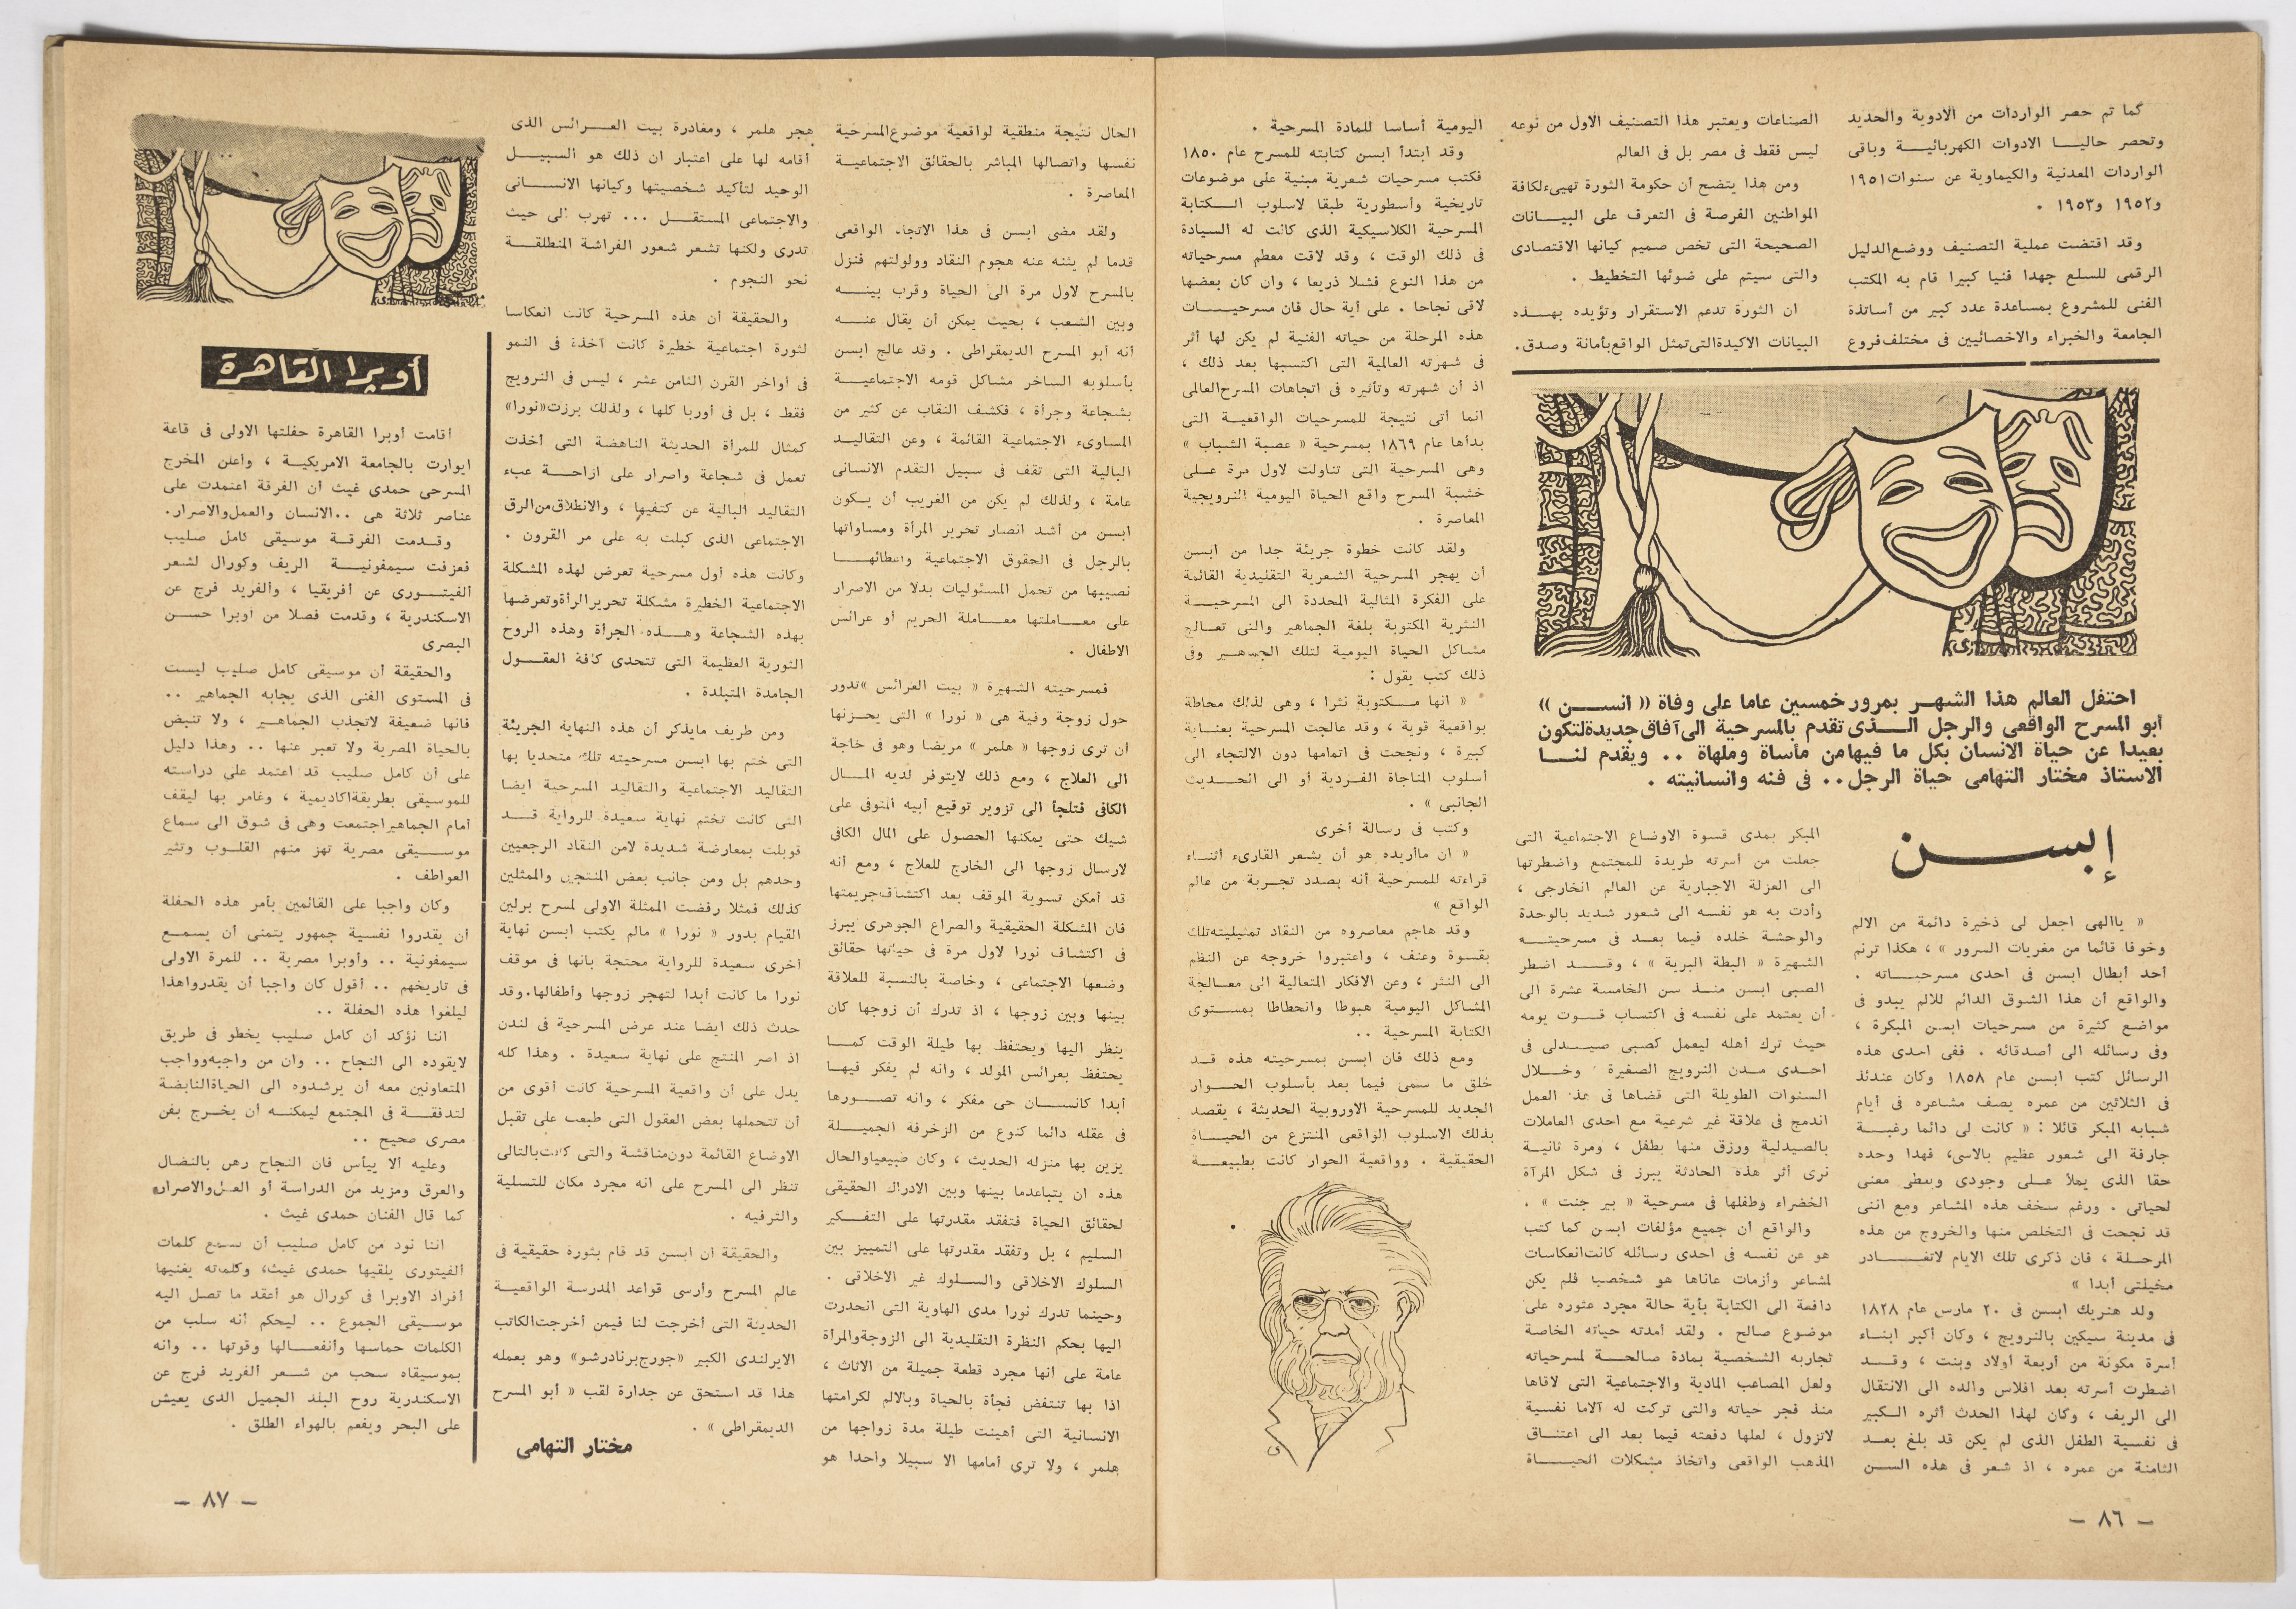 كما تم حصر الواردات من الادوية والحديد
وتحصر حاليا الادوات الكهربائية وباقى
الواردات المعدنية والكيماوية عن سنوات ١٩٥١
و١٩٥٢ و١٩٥٣ .
وقد اقتضت عملية التصنيف ووضع الدليل
الرقمى للسلع جهدا فنيا كبيرا قام به المكتب
الفنى للمشروع بمساعدة عدد كبير من أساتذة
الجامعة والخبراء والاخصائيين فى مختلف فروع
الصناعات ويعتبر هذا التصنيف الاول من نوعه
ليس فقط فى مصر بل فى العالم
ومن هذا يتضح أن حكومة الثورة تهيىء لكافة
المواطنين الفرصة فى التعرف على البيانات
الصحيحة التى تخص صميم كيانها الاقتصادى
والتى سيتم على ضوئها التخطيط .
ان الثورة تدعم الاستقرار وتؤيده بهذه
البيانات الاكيدة التى تمثل الواقع بأمانة وصدق.
احتفل العالم هذا الشهر بمرور خمسين عاما على وفاة « انسن »
أبو المسرح الواقعى والرجل الذى تقدم بالمسرحية الى آفاق جديدة لتكون
بعيدا عن حياة الانسان بكل ما فيها من مأساة وملهاة .. ويقدم لنا
الاستاذ مختار التهامى حياة الرجل .. فى فنه وانسانيته .
إبسن
« ياالهى اجعل لى ذخيرة دائمة من الالم
وخوفا قائما من مغريات السرور » ، هكذا ترنم
أحد أبطال ابسن فى احدى مسرحياته .
والواقع أن هذا الشوق الدائم للالم يبدو فى
مواضع كثيرة من مسرحيات ابسن المبكرة ،
وفى رسائله الى أصدقائه . ففى احدى هذه
الرسائل كتب ابسن عام ١٨٥٨ وكان عندئذ
فى الثلاثين من عمره يصف مشاعره فى أيام
شبابه المبكر قائلا : « كانت لى دائما رغبة
جارفة الى شعور عظيم بالاسى، فهذا وحده
حقا الذى يملأ على وجودى ويعطى معنى
لحياتى . ورغم سخف هذه المشاعر ومع اننى
قد نجحت فى التخلص منها والخروج من هذه
المرحلة ، فان ذكرى تلك الايام لاتغادر
مخيلتى أبدا »
ولد هنريك ابسن فى ٢٠ مارس عام ١٨٢٨
فى مدينة سيكين بالنرويج ، وكان أكبر ابناء
أسرة مكونة من أربعة أولاد وبنت ، وقد
اضطرت أسرته بعد افلاس والده الى الانتقال
الى الريف ، وكان لهذا الحدث أثره الكبير
فى نفسية الطفل الذى لم يكن قد بلغ بعد
الثامنة من عمره ، اذ شعر فى هذه السن
المبكر بمدى قسوة الاوضاع الاجتماعية التى
جعلت من أسرته طريدة للمجتمع واضطرتها
الى العزلة الاجبارية عن العالم الخارجى ،
وأدت به هو نفسه الى شعور شديد بالوحدة
والوحشة خلده فيما بعد فى مسرحيته
الشهيرة « البطة البرية » ، وقد اضطر
الصبى ابسن منذ سن الخامسة عشرة الى
أن يعتمد على نفسه فى اكتساب قوت يومه
حيث ترك أهله ليعمل كصبى صيدلى فى
احدى مدن النرويج الصغيرة وخلال
السنوات الطويلة التى قضاها فى هذ العمل
اندمج فى علاقة غير شرعية مع احدى العاملات
بالصيدلية ورزق منها بطفل ، ومرة ثانية
نرى أثر هذه الحادثة يبرز فى شكل المرآة
الخضراء وطفلها فى مسرحية « بير جنت » .
والواقع أن جميع مؤلفات ابسن كما كتب
هو عن نفسه فى احدى رسائله كانت انعكاسات
لمشاعر وأزمات عاناها هو شخصيا فلم يكن
دافعة الى الكتابة بأية حالة مجرد عثوره على
موضوع صالح . ولقد أمدته حياته الخاصة
تجاربه الشخصية بمادة صالحة لمسرحياته
ولعل المصاعب المادية والاجتماعية التى لاقاها
منذ فجر حياته والتى تركت له آلاما نفسية
لاتزول ، لعلها دفعته فيما بعد الى اعتناق
المذهب الواقعى واتخاذ مشكلات الحياة
اليومية أساسا للمادة المسرحية .
وقد ابتدأ ابسن كتابته للمسرح عام ١٨٥٠
فكتب مسرحيات شعرية مبنية على موضوعات
تاريخية وأسطورية طبقا لاسلوب الكتابة
المسرحية الكلاسيكية الذى كانت له السيادة
فى ذلك الوقت ، وقد لاقت معظم مسرحياته
من هذا النوع فشلا ذريعا ، وان كان بعضها
لاقى نجاحا . على أية حال فان مسرحيات
هذه المرحلة من حياته الفنية لم يكن لها أثر
فى شهرته العالمية التى اكتسبها بعد ذلك ،
اذ أن شهرته وتأثيره فى اتجاهات المسرح العالمى
انما أتى نتيجة للمسرحيات الواقعية التى
بدأها عام ١٨٦٩ بمسرحية « عصبة الشباب »
وهى المسرحية التى تناولت لاول مرة على
خشبة المسرح واقع الحياة اليومية النرويجية
المعاصرة .
ولقد كانت خطوة جريئة جدا من ابسن
أن يهجر المسرحية الشعرية التقليدية القائمة
على الفكرة المثالية المحددة الى المسرحية
النثرية المكتوبة بلغة الجماهير والتى تعالج
مشاكل الحياة اليومية لتلك الجماهير وفى
ذلك كتب يقول :
« انها مكتوبة نثرا ، وهى لذلك محاطة
بواقعية قوية ، وقد عالجت المسرحية بعناية
كبيرة ، ونجحت فى اتمامها دون الالتجاء الى
أسلوب المناجاة الفردية أو الى الحديث
الجانبى » .
وكتب فى رسالة أخرى
« ان ماأريده هو أن يشعر القارىء أثناء
قراءته للمسرحية أنه بصدد تجربة من عالم
الواقع »
وقد هاجم معاصروه من النقاد تمثيليته تلك
بقسوة وعنف ، واعتبروا خروجه عن النظم
الى النثر ، وعن الافكار المتعالية الى معالجة
المشاكل اليومية هبوطا وانحطاطا بمستوى
الكتابة المسرحية ..
ومع ذلك فان ابسن بمسرحيته هذه قد
خلق ما سمى فيما بعد بأسلوب الحوار
الجديد للمسرحية الاوروبية الحديثة ، يقصد
بذلك الاسلوب الواقعى المنتزع من الحياة
الحقيقية . وواقعية الحوار كانت بطبيعة
— ٨٦ —
الحال نتيجة منطقية لواقعية موضوع المسرحية
نفسها واتصالها المباشر بالحقائق الاجتماعية
المعاصرة .
ولقد مضى ابسن فى هذا الاتجاه الواقعى
قدما لم يثنه عنه هجوم النقاد وولولتهم فنزل
بالمسرح لاول مرة الى الحياة وقرب بينه
وبين الشعب ، بحيث يمكن أن يقال عنه
أنه أبو المسرح الديمقراطى . وقد عالج ابسن
بأسلوبه الساخر مشاكل قومه الاجتماعية
بشجاعة وجرأة ، فكشف النقاب عن كثير من
المساوىء الاجتماعية القائمة ، وعن التقاليد
البالية التى تقف فى سبيل التقدم الانسانى
عامة ، ولذلك لم يكن من الغريب أن يكون
ابسن من أشد انصار تحرير المرأة ومساواتها
بالرجل فى الحقوق الاجتماعية واعطائها
نصيبها من تحمل المسئوليات بدلا من الاصرار
على معاملتها معاملة الحريم أو عرائس
الاطفال .
فمسرحيته الشهيرة « بيت العرائس » تدور
حول زوجة وفية هى « نورا » التى يحزنها
أن ترى زوجها « هلمر » مريضا وهو فى حاجة
الى العلاج ، ومع ذلك لايتوفر لديه المال
الكافى فتلجأ الى تزوير توقيع أبيه المتوفى على
شيك حتى يمكنها الحصول على المال الكافى
لارسال زوجها الى الخارج للعلاج ، ومع أنه
قد أمكن تسوية الموقف بعد اكتشاف جريمتها
فان المشكلة الحقيقية والصراع الجوهرى يبرز
فى اكتشاف نورا لاول مرة فى حياتها حقائق
وضعها الاجتماعى ، وخاصة بالنسبة للعلاقة
بينها وبين زوجها ، اذ تدرك أن زوجها كان
ينظر اليها ويحتفظ بها طيلة الوقت كما
يحتفظ بعرائس المولد ، وانه لم يفكر فيها
أبدا كانسان حى مفكر ، وانه تصورها
فى عقله دائما كنوع من الزخرفة الجميلة
يزين بها منزله الحديث ، وكان طبيعيا والحال
هذه ان يتباعدما بينها وبين الادراك الحقيقى
لحقائق الحياة فتفقد مقدرتها على التفكير
السليم ، بل وتفقد مقدرتها على التمييز بين
السلوك الاخلاقى والسلوك غير الاخلاقى .
وحينما تدرك نورا مدى الهاوية التى انحدرت
اليها بحكم النظرة التقليدية الى الزوجة والمرأة
عامة على أنها مجرد قطعة جميلة من الاثاث ،
اذا بها تنتفض فجأة بالحياة وبالالم لكرامتها
الانسانية التى أهينت طيلة مدة زواجها من
هلمر ، ولا ترى أمامها الا سبيلا واحدا هو
هجر هلمر ، ومغادرة بيت العرائس الذى
أقامه لها على اعتبار ان ذلك هو السبيل
الوحيد لتأكيد شخصيتها وكيانها الانسانى
والاجتماعى المستقل ... تهرب الى حيث
تدرى ولكنها تشعر شعور الفراشة المنطلقة
نحو النجوم .
والحقيقة أن هذه المسرحية كانت انعكاسا
لثورة اجتماعية خطيرة كانت آخذة فى النمو
فى أواخر القرن الثامن عشر ، ليس فى النرويج
فقط ، بل فى أوربا كلها ، ولذلك برزت «نورا»
كمثال للمرأة الحديثة الناهضة التى أخذت
تعمل فى شجاعة واصرار على ازاحة عبء
التقاليد البالية عن كتفيها ، والانطلاق من الرق
الاجتماعى الذى كبلت به على مر القرون .
وكانت هذه أول مسرحية تعرض لهذه المشكلة
الاجتماعية الخطيرة مشكلة تحرير المرأة وتعرضها
بهذه الشجاعة وهذه الجرأة وهذه الروح
الثورية العظيمة التى تتحدى كافة العقول
الجامدة المتبلدة .
ومن طريف مايذكر أن هذه النهاية الجريئة
التى ختم بها ابسن مسرحيته تلك متحديا بها
التقاليد الاجتماعية والتقاليد المسرحية ايضا
التى كانت تختم نهاية سعيدة للرواية قد
قوبلت بمعارضة شديدة لامن النقاد الرجعيين
وحدهم بل ومن جانب بعض المنتجين والممثلين
كذلك فمثلا رفضت الممثلة الاولى لمسرح برلين
القيام بدور « نورا » مالم يكتب ابسن نهاية
أخرى سعيدة للرواية محتجة بانها فى موقف
نورا ما كانت أبدا لتهجر زوجها وأطفالها. وقد
حدث ذلك ايضا عند عرض المسرحية فى لندن
اذ اصر المنتج على نهاية سعيدة . وهذا كله
يدل على أن واقعية المسرحية كانت أقوى من
أن تتحملها بعض العقول التى طبعت على تقبل
الاوضاع القائمة دون مناقشة والتى كانت بالتالى
تنظر الى المسرح على انه مجرد مكان للتسلية
والترفيه .
والحقيقة ان ابسن قد قام بثورة حقيقية فى
عالم المسرح وأرسى قواعد المدرسة الواقعية
الحديثة التى أخرجت لنا فيمن أخرجت الكاتب
الايرلندى الكبير «جورج برنادرشو» وهو بعمله
هذا قد استحق عن جدارة لقب « أبو المسرح
الديمقراطى » .
مختار التهامى
أوبرا القاهرة
أقامت أوبرا القاهرة حفلتها الاولى فى قاعة
ايوارت بالجامعة الامريكية ، وأعلن المخرج
المسرحى حمدى غيث أن الفرقة اعتمدت على
عناصر ثلاثة هى .. الانسان والعمل والاصرار.
وقدمت الفرقة موسيقى كامل صليب
فعزفت سيمفونية الريف وكورال لشعر
الفيتورى عن أفريقيا ، والفريد فرج عن
الاسكندرية ، وقدمت فصلا من اوبرا حسن
البصرى
والحقيقة أن موسيقى كامل صليب ليست
فى المستوى الفنى الذى يجابه الجماهير ..
فانها ضعيفة لاتجذب الجماهير ، ولا تنبض
بالحياة المصرية ولا تعبر عنها .. وهذا دليل
على أن كامل صليب قد اعتمد على دراسته
للموسيقى بطريقة اكاديمية ، وغامر بها ليقف
أمام الجماهير اجتمعت وهى فى شوق الى سماع
موسيقى مصرية تهز منهم القلوب وتثير
العواطف .
وكان واجبا على القائمين بأمر هذه الحفلة
أن يقدروا نفسية جمهور يتمنى أن يسمع
سيمفونية .. وأوبرا مصرية .. للمرة الاولى
فى تاريخهم .. أقول كان واجبا أن يقدروا هذا
ليلغوا هذه الحفلة ..
اننا نؤكد أن كامل صليب يخطو فى طريق
لايقوده الى النجاح .. وان من واجبه وواجب
المتعاونين معه أن يرشدوه الى الحياة النابضة
لتدفقة فى المجتمع ليمكنه أن يخرج بفن
مصرى صحيح ..
وعليه ألا ييأس فان النجاح رهن بالنضال
والعرق ومزيد من الدراسة أو العمل والاصرار
كما قال الفنان حمدى غيث .
اننا نود من كامل صليب أن يسمع كلمات
الفيتورى يلقيها حمدى غيث، وكلماته يغنيها
أفراد الاوبرا فى كورال هو أعقد ما تصل اليه
موسيقى الجموع .. ليحكم أنه سلب من
الكلمات حماسها وأنفعالها وقوتها .. وانه
بموسيقاه سحب من شعر الفريد فرج عن
الاسكندرية روح البلد الجميل الذى يعيش
على البحر ويفعم بالهواء الطلق .
— ٨٧ —